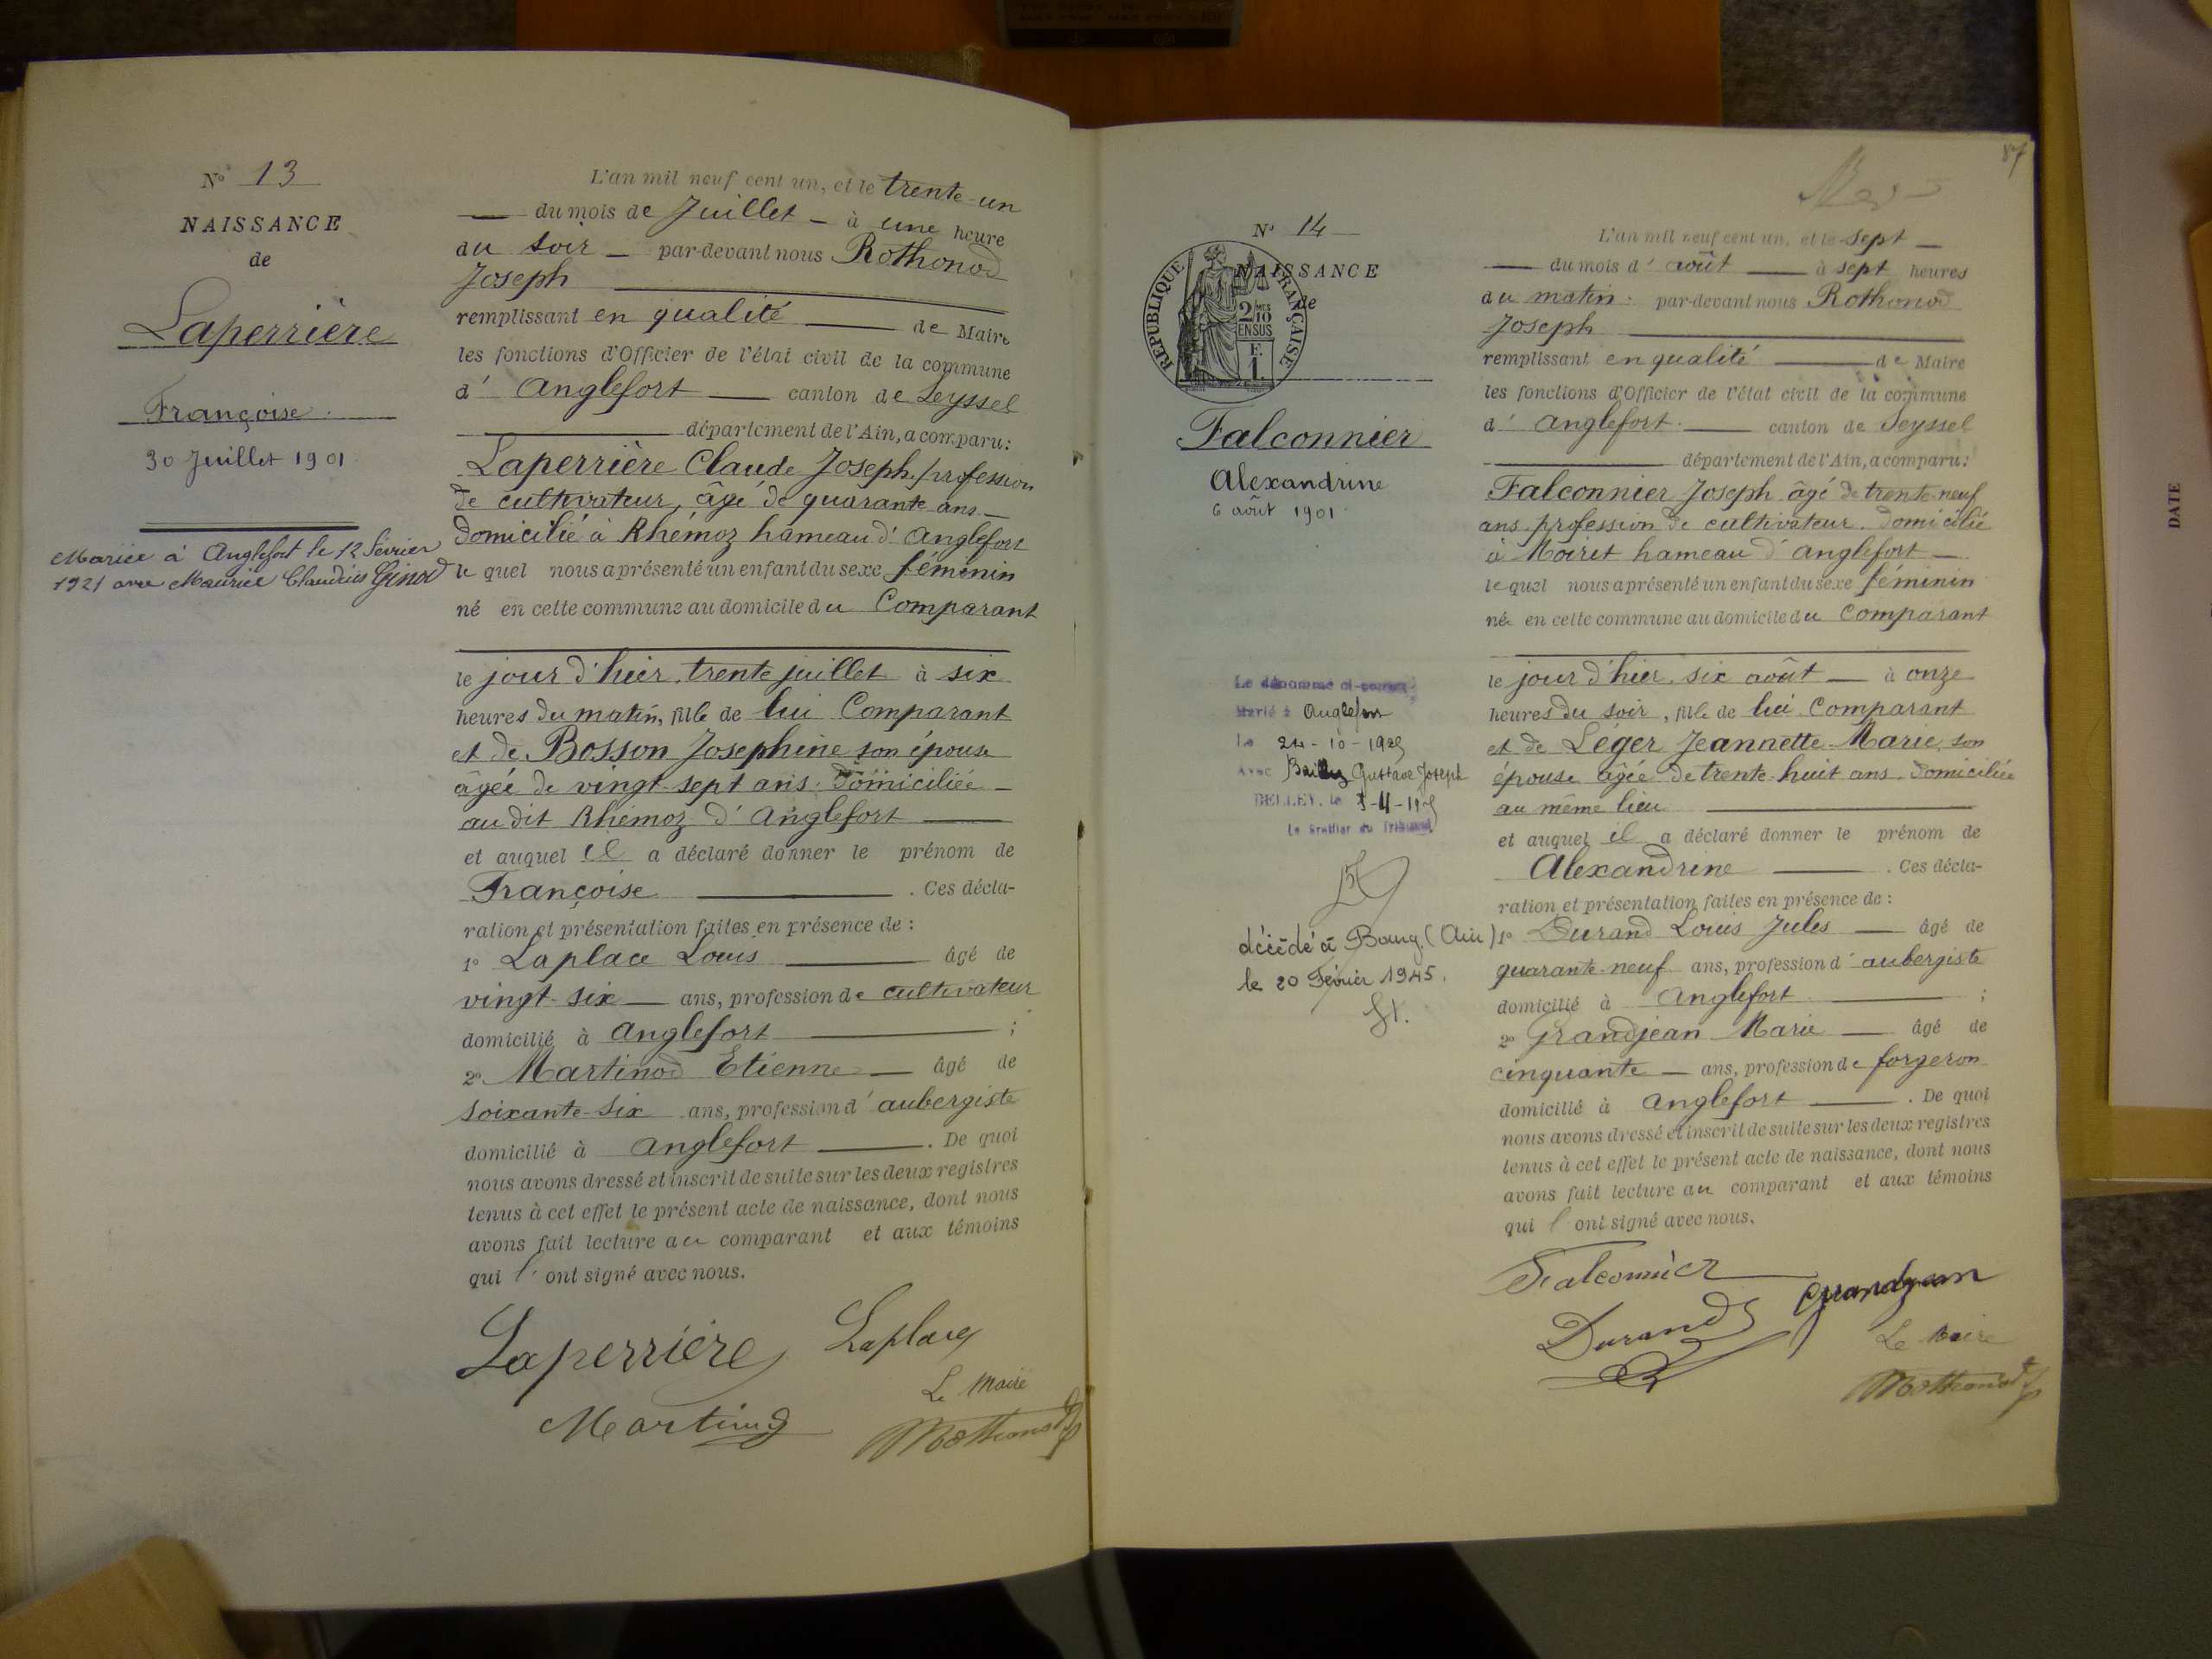 N° 13
NAISSANCE
de
Laperrière
Françoise
30 Juillet 1901
Mariée à Anglefort le 12 février
1921 avec Maurice Claudius Ginod
L'an mil neuf cent un, et le trente-un
du mois de Juillet à une heure
du soir par-devant nous Rothonod
Joseph
remplissant en qualité de Maire
les fonctions d'Officier de l'état civil de la commune
d' Anglefort canton de Seyssel
département de l'Ain, a comparu:
Laperrière Claude Joseph, profession
de cultivateur, âgé de quarante ans
domicilié à Rhémoz hameau d'Anglefort
le quel nous a présenté un enfant du sexe féminin
né en cette commune au domicile du Comparant
le jour d'hier, trente juillet à six
heures du matin, fille de lui Comparant
et de Bosson Josephine son épouse
âgée de vingt-sept ans. domiciliée
au dit Rhémoz d'Anglefort
et auquel il a déclaré donner le prénom de
Françoise . Ces décla-
ration et présentation faites en présence de :
1° Laplace Louis âgé de
vingt-six ans, profession de cultivateur
domicilié à Anglefort ;
2° Martinod Etienne âgé de
soixante-six ans, profession d'aubergiste
domicilié à Anglefort . De quoi
nous avons dressé et inscrit de suite sur les deux registres
tenus à cet effet le présent acte de naissance, dont nous
avons fait lecture au comparant et aux témoins
qui l'ont signé avec nous.
Laperrière Laplace
Le Maire
Martinod Rothonod
87
N° 14
REPUBLIQUE FRANÇAISE
2/10
EN SUS
NAISSANCE
de
Falconnier
Alexandrine
6 août 1901
Le dénommé ci-contre
Marié à Anglefort
Le 24-10-1925
Avec Gustave Joseph
BELLEY, le
Le Greffier du Tribunal
décédé à Bourg (Ain)
le 20 Février 1945.
L'an mil neuf cent un, et le sept
du mois d'août à sept heures
du matin par-devant nous Rothonod
Joseph
remplissant en qualité de Maire
les fonctions d'Officier de l'état civil de la commune
d' Anglefort canton de Seyssel
département de l'Ain, a comparu:
Falconnier Joseph âgé de trente-neuf
ans, profession de cultivateur. domicilié
à Moiret hameau d'Anglefort
le quel nous a présenté un enfant du sexe féminin
née en cette commune au domicile du Comparant
le jour d'hier, six août à onze
heures du soir, fille de lui Comparant
et de Léger Jeannette-Marie, son
épouse âgée de trente-huit ans. domiciliée
au même lieu
et auquel il a déclaré donner le prénom de
Alexandrine . Ces décla-
ration et présentation faites en présence de :
1° Durand Louis Jules âgé de
quarante-neuf ans, profession d'aubergiste
domicilié à Anglefort ;
2° Grandjean Marie âgé de
cinquante ans, profession de forgeron
domicilié à Anglefort . De quoi
nous avons dressé et inscrit de suite sur les deux registres
tenus à cet effet le présent acte de naissance, dont nous
avons fait lecture au comparant et aux témoins
qui l'ont signé avec nous.
Falconnier
Durand Grandjean
Le Maire
Rothonod
DATE